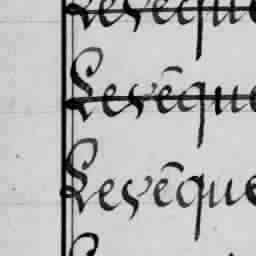 Levēque
Levēque
Levēque